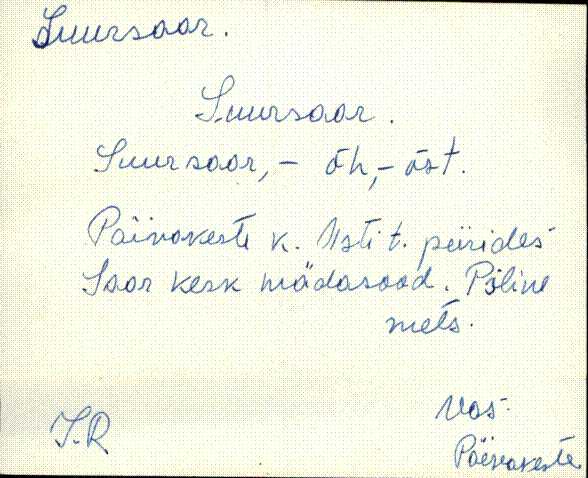 Suursaar.
Suursaar.
Suursaar, - õh, - õst.
Päivakeste k. Usti t. piirides
Saar kesk mädasood. Põline
mets.
J.R Vas.
Päevakeste